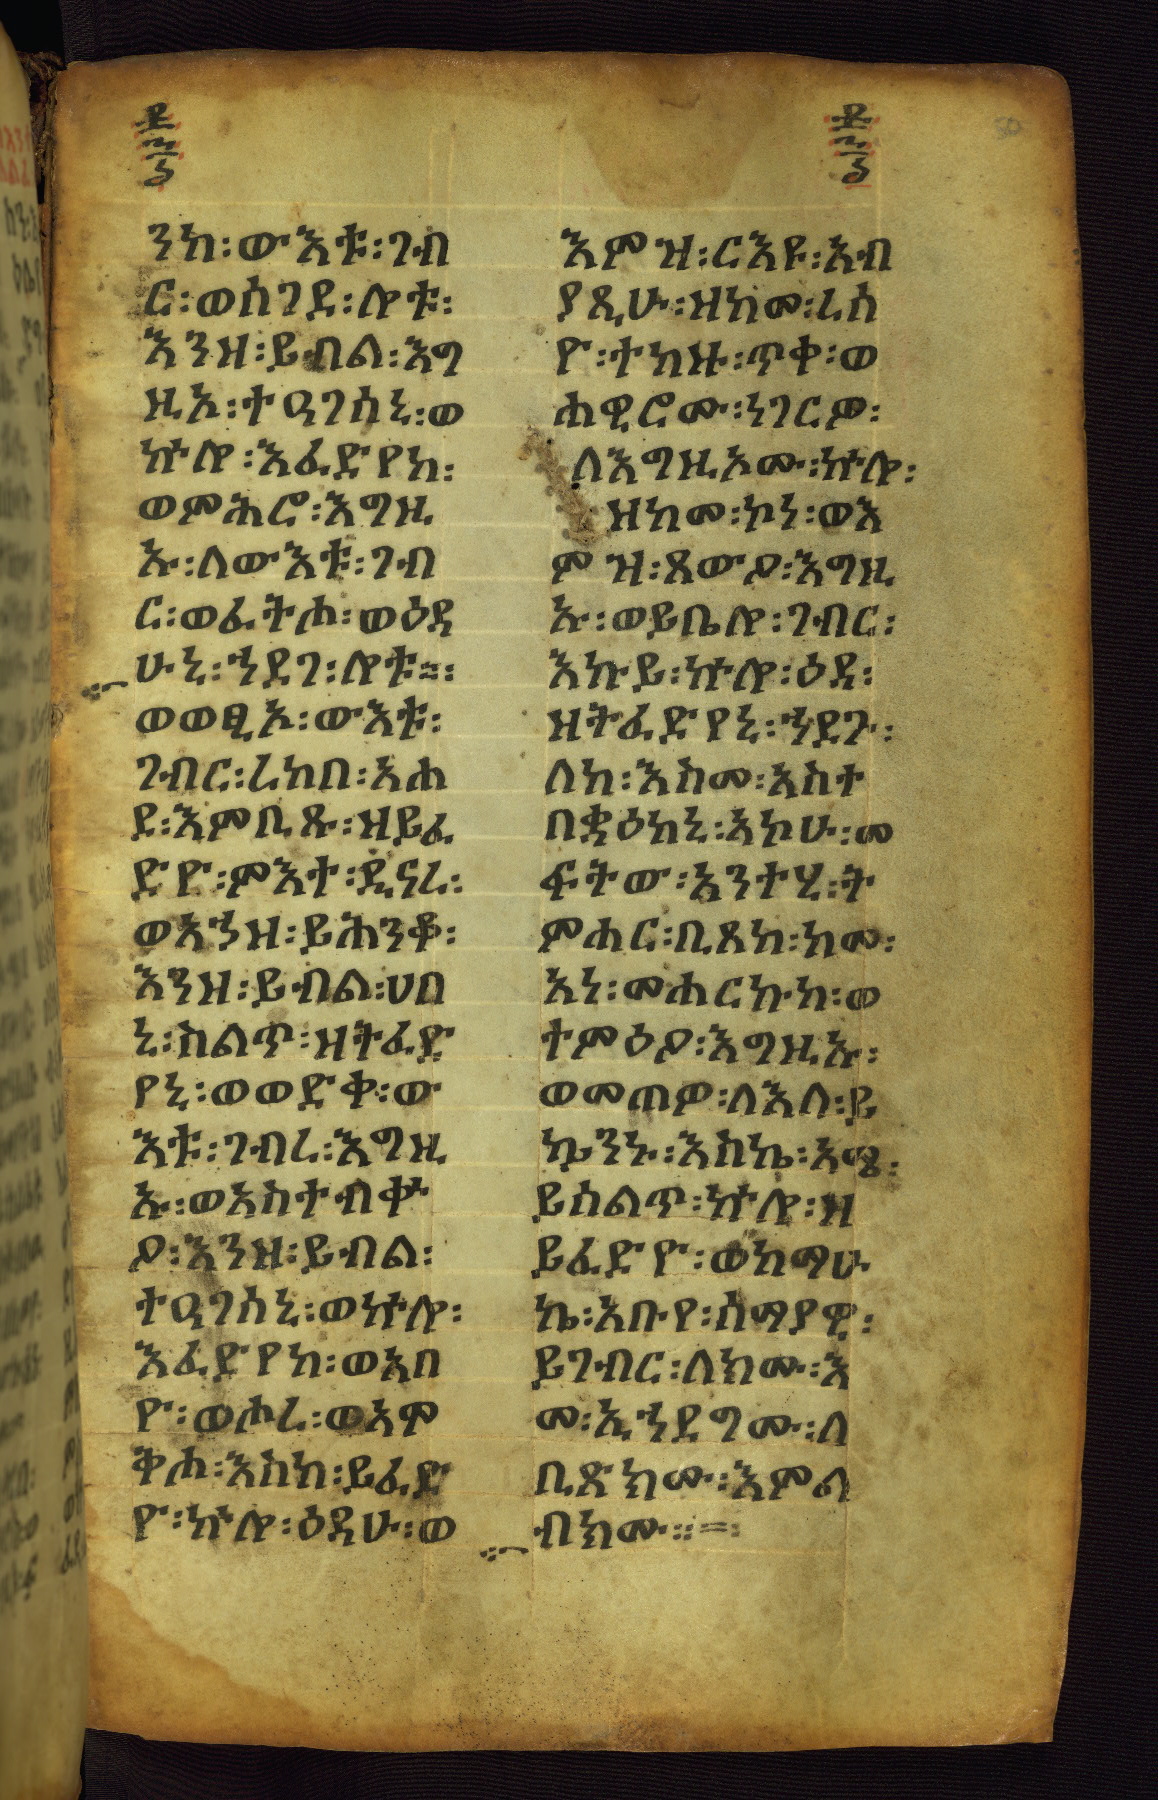 ንከ፡ውእቱ፡ገብ
ር፡ወሰገደ፡ሎቱ፡
እንዘ፡ይብል፡እግ
ዚኦ፡ተዐገሰኒ፡ወ
ኵሎ፡እፈድየከ፡
ወምሕሮ፡እግዚ
ኡ፡ለውእቱ፡ገብ
ር፡ወፈትሖ፡ወዕዳ
ሁኒ፡ኀደገ፡ሎቱ።፡
ወወፂኦ፡ውእቱ፡
ገብር፡ረከበ፡አሐ
ደ፡እምቢጹ፡ዘይፈ
ድዮ፡ምእተ፡ዲናረ፡
ወአኀዘ፡ይሕንቆ፡
እንዘ፡ይብል፡ሀበ
ኒ፡ስልጥ፡ዘትፈድ
የኒ፡ወወድቀ፡ው
እቱ፡ገብረ፡እግዚ
ኡ፡ወአስተብቍ
ዖ፡እንዘ፡ይብል፡
ተዐገሰኒ፡ወኵሎ፡
እፈድየከ፡ወአበ
ዮ፡ወሖረ፡ወአም
ቅሐ፡እስከ፡ይፈድ
ዮ፡ኵሎ፡ዕዳሁ፡ወ
እምዝ፡ርእዩ፡አብ
ያጺሁ፡ዘከመ፡ረሰ
ዮ፡ተከዙ፡ጥቀ፡ወ
ሐዊሮሙ፡ነገርዎ፡
ለእግዚኦሙ፡ኵሎ፡
ዘከመ፡ኮነ፡ወእ
ምዝ፡ጸውዖ፡እግዚ
ኡ፡ወይቤሎ፡ገብር፡
እኩይ፡ኵሎ፡ዕዳ፡
ዘትፈድየኒ፡ኀደጉ፡
ለከ፡እስመ፡አስተ
በቋዕከኒ፡አኮሁ፡መ
ፍትው፡አንተሂ፡ት
ምሐር፡ቢጸከ፡ከመ፡
አነ፡መሐርኩከ፡ወ
ተምዕዖ፡እግዚኡ፡
ወመጠዎ፡ለእለ፡ይ
ኴንኑ፡እስከ፡አመ፡
ይሰልጥ፡ኵሎ፡ዘ
ይፈድዮ፡ወከማሁ
ኬ፡አቡየ፡ሰማያዊ፡
ይገብር፡ለክሙ፡እ
መ፡ኢኀደግሙ፡ለ
ቢጽክሙ፡እምል
ብክሙ።